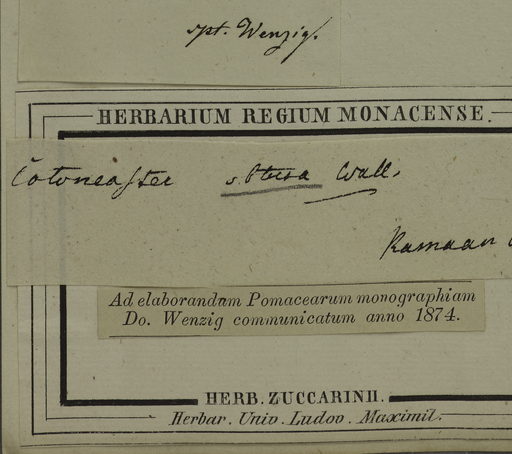 spt. Wenzig.
HERBARIUM REGIUM MONACENSE.
Cotoneaster obtusa Wall.
Kamaan
Ad elaborandum Pomacearum monographiam
Do. Wenzig communicatum anno 1874.
HERB. ZUCCARINII.
Herbar. Univ. Ludov. Maximil.